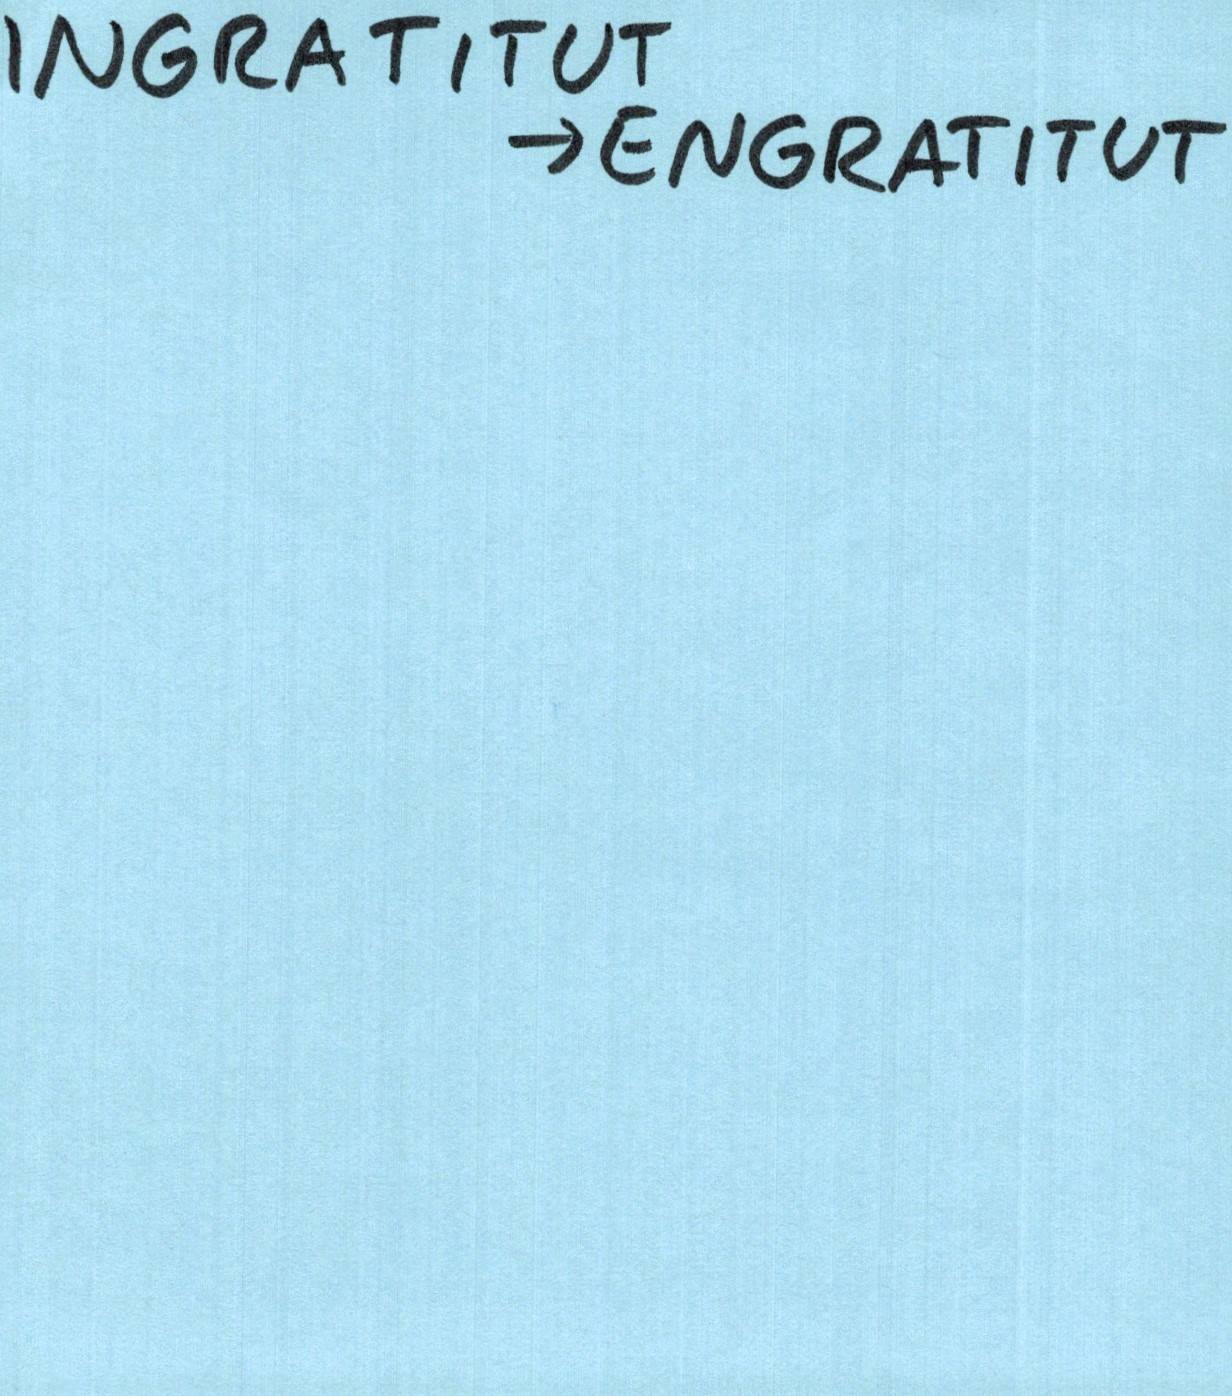 INGRATITUT
→ENGRATITUT